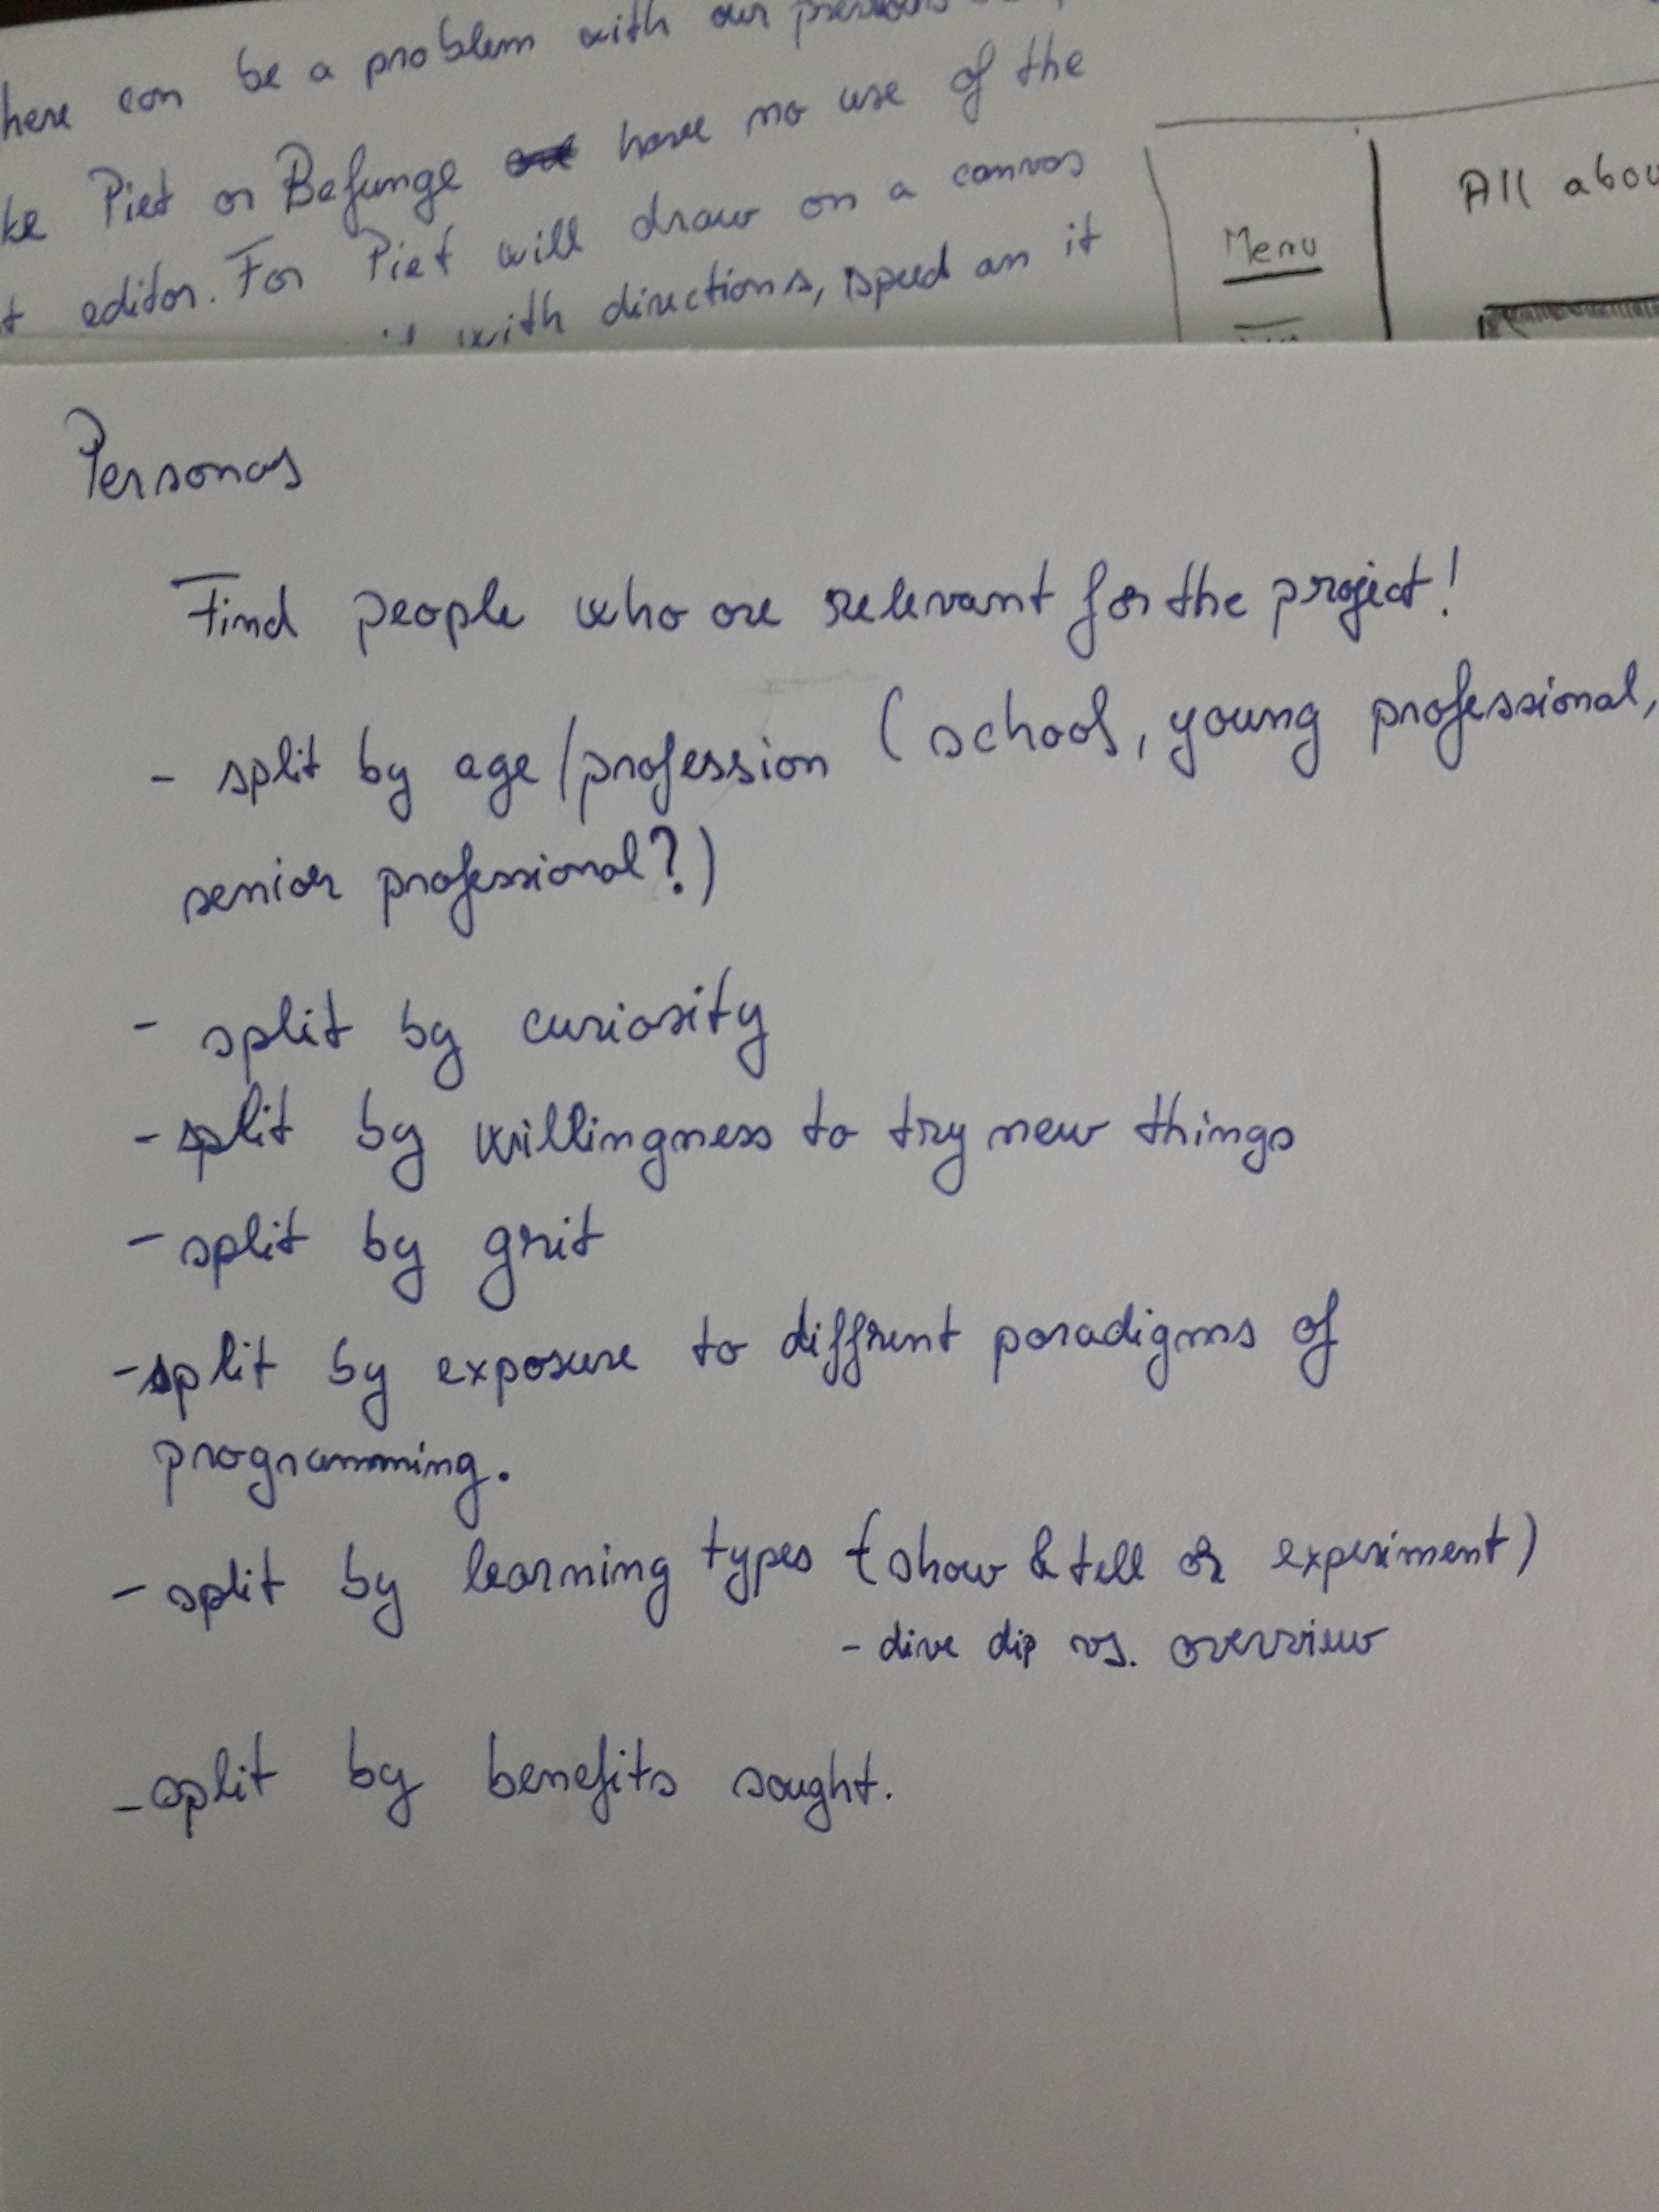 here can be a problem with our previous
ke Piet or Befunge have no use of the
t editor. For Piet will draw on a canvas
with directions, speed an it
Menu
All abou
Personas
Find people who are relevant for the project!
- split by age/profession (school, young professional,
senior professional?)
- split by curiosity
- split by willingness to try new things
- split by grit
- split by exposure to diffrent paradigms of
programming.
- split by learning types (show & tell or experiment)
- dive dip vs. overview
- split by benefits sought.